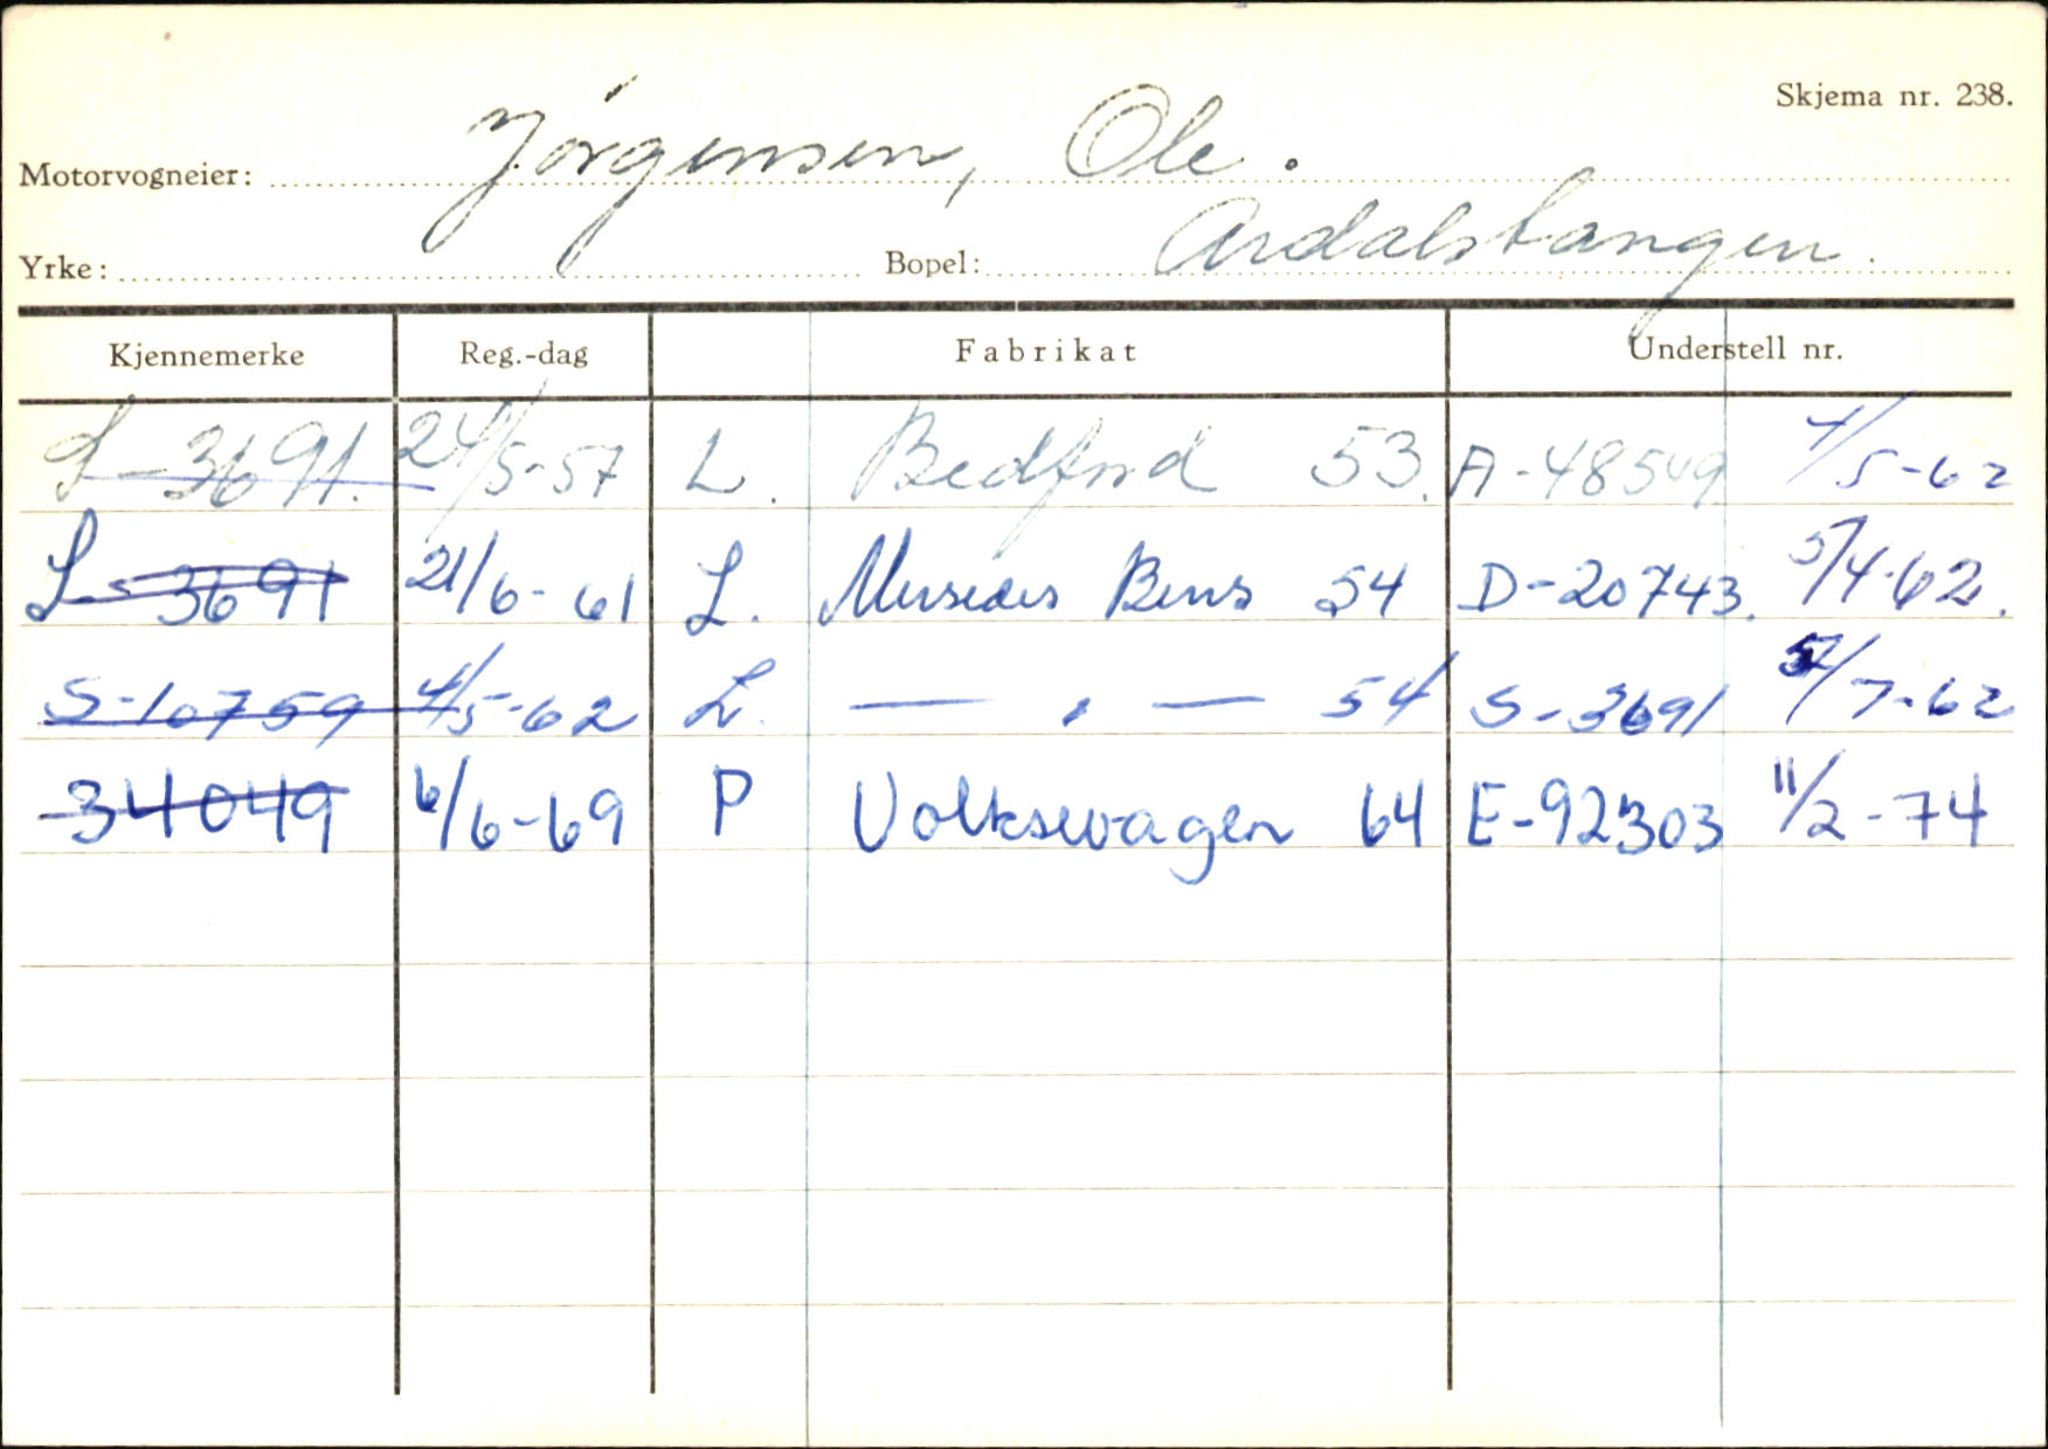 Skjema nr. 238.
Motorvogneier: Jörgensen, Ole.
Yrke: Bopel: Årdalstangen.
Kjennemerke Reg.-dag Fabrikat Understell nr.
S-3691. 24/5-57 L. Bedford 53. A-48549 4/5-62
S-3691 21/6-61 L. Mersedes Bens 54 D-20743. 5/4-62.
S-10759 4/5-62 L. — " — 54 S-3691 /7-62
34049 6/6-69 P Volkswagen 64 E-92303 11/2-74